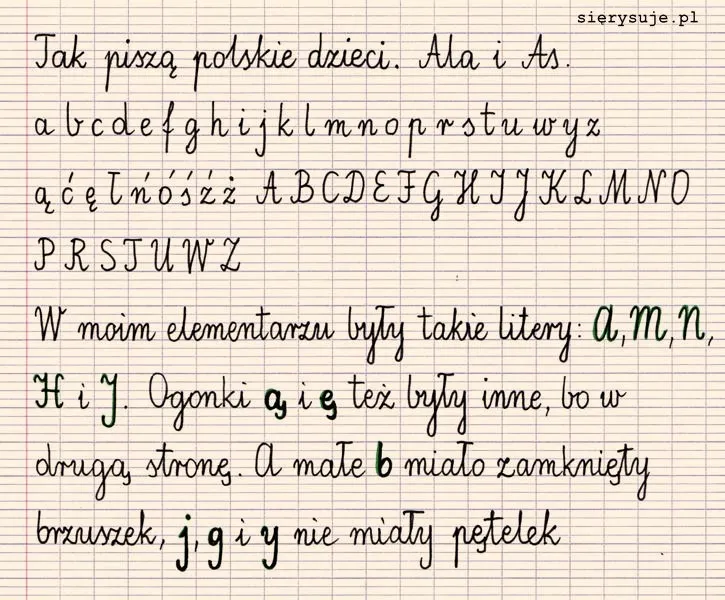 sierysuje.pl
Tak piszą polskie dzieci. Ala i As.
a b c d e f g h i j k l m n o p r s t u w y z
ą ć ę ł ń ó ś ź ż A B C D E F G H I J K L M N O
P R S T U W Z
W moim elementarzu były takie litery: A, M, N,
H i J. Ogonki ą i ę też były inne, bo w
drugą stronę. A małe b miało zamknięty
brzuszek, j, g i y nie miały pętelek